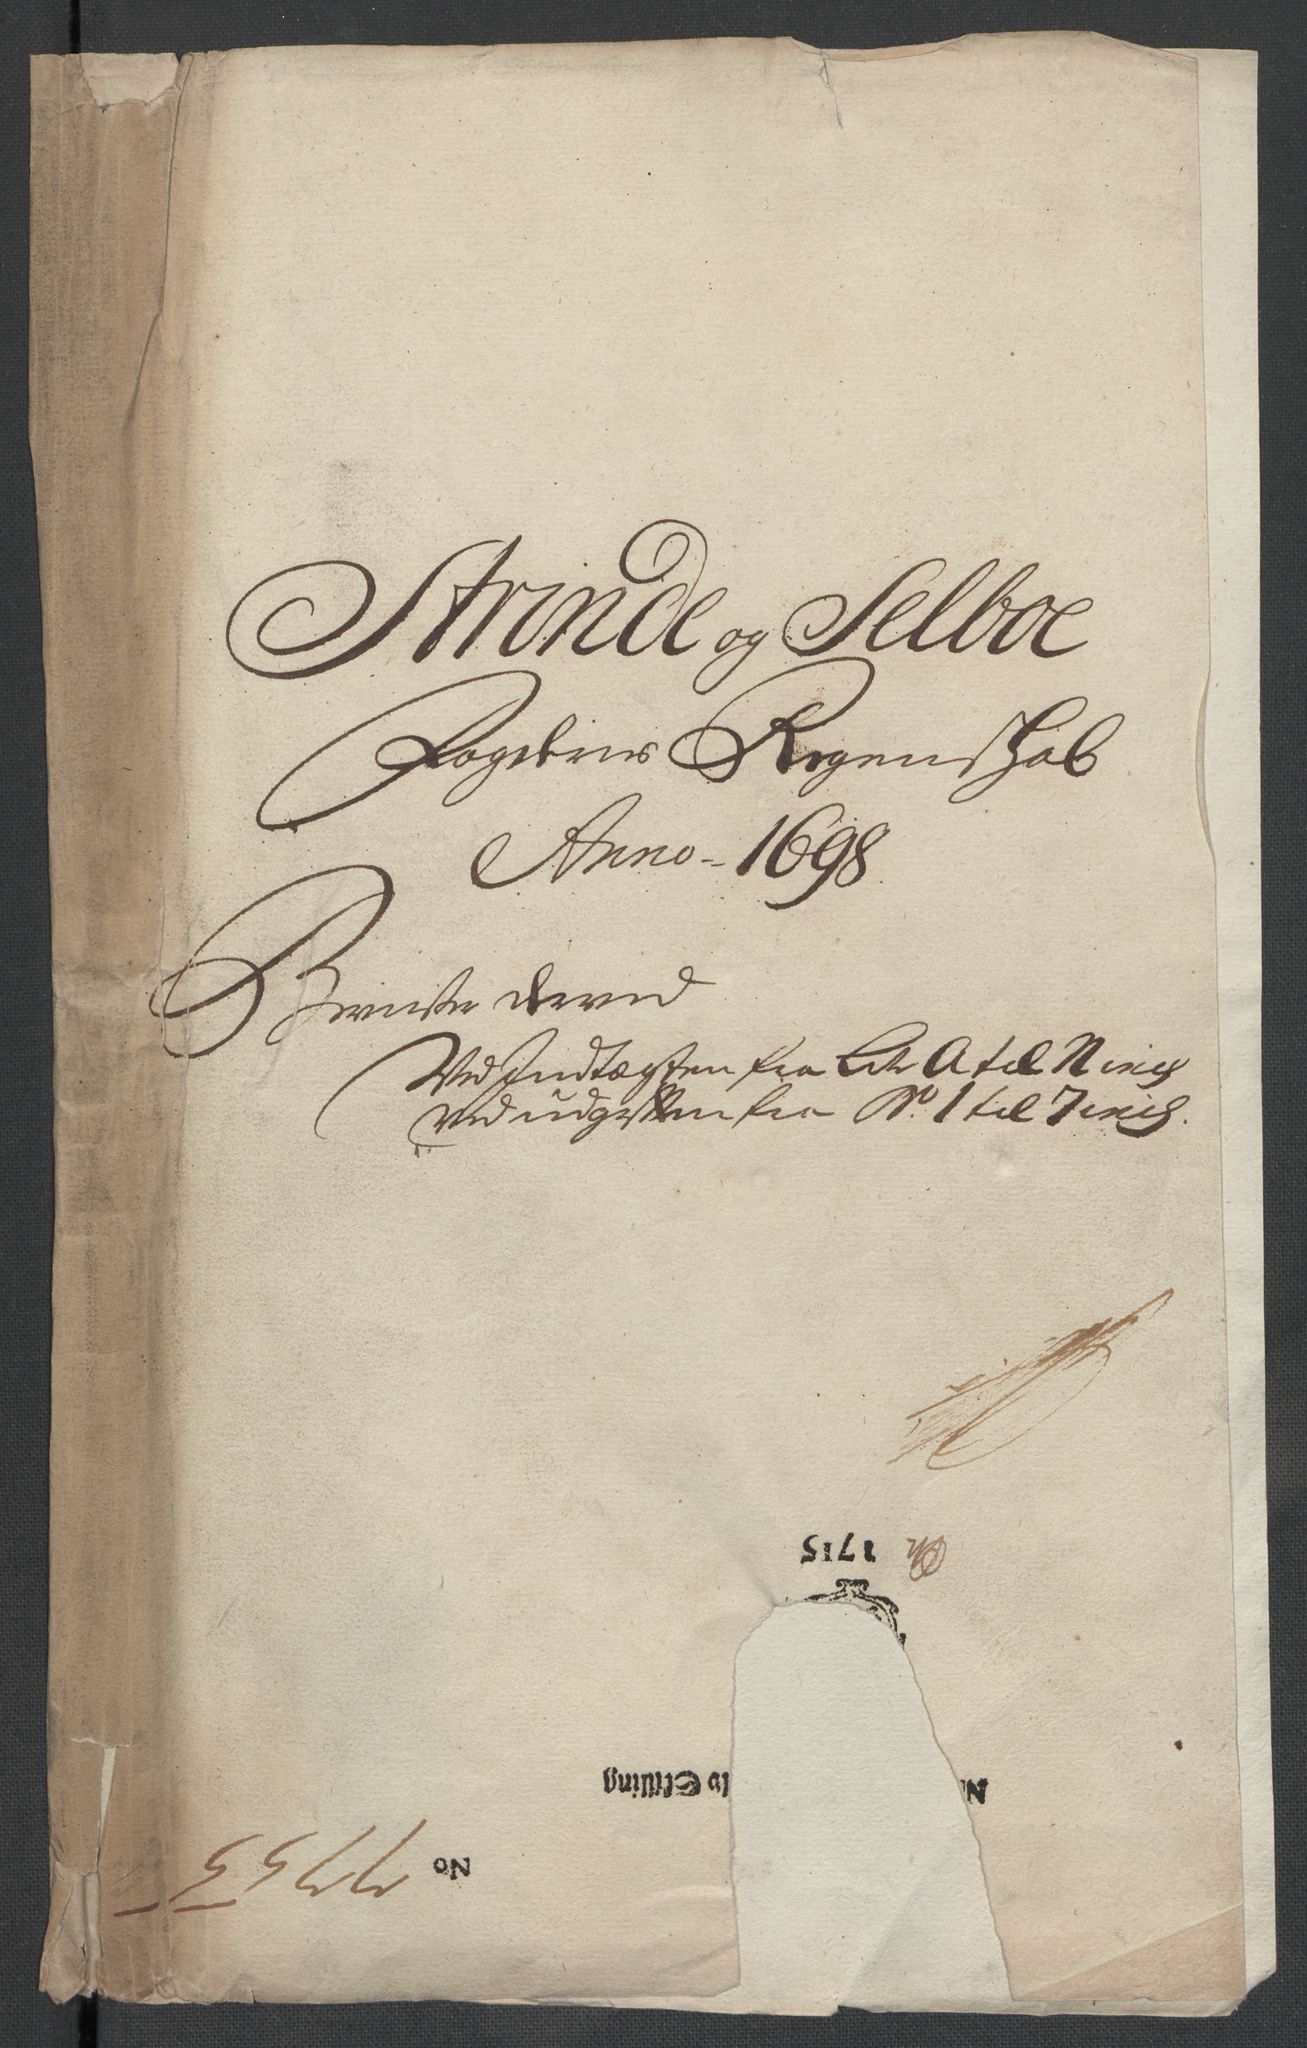 Strinde og Selboe
Fogderies Regenskab
Anno - 1698
Beviiser derved
Ved Indtægten fra Litr A til N incl
ved udgiften fra No. 1 til 7 incl.
1715
No
lv Skilling
No 7755